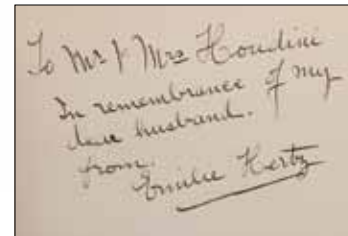 To Mr & Mrs Houdini
In remembrance of my
dear husband.
from.
Emilie Hertz